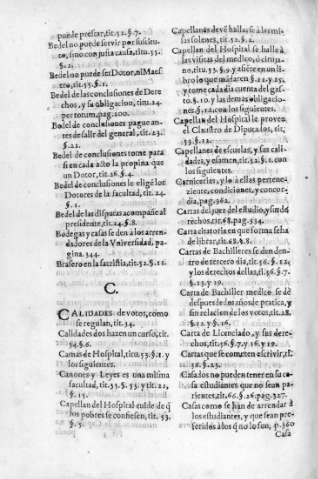 puede prestar, tit. 52. §. 7.
Bedel no puede servir por sustituto, sino con justa causa, titu. 35.
§. 2.
Bedel no puede ser Dotor, ni Maestro, tit. 35. §. 1.
Bedel de las conclusiones de Derechos, y su obligacion, titu. 24.
per totum, pag. 200.
Bedel de conclusiones pague antes de salir del general, tit. 23.
§. 21.
Bedel de conclusiones tome para
si en cada año la propina que
un Dotor, tit. 26. §. 4.
Bedel de conclusiones le elige los
Dotores de la facultad, tit. 24.
§. 1.
Bedel de las disputas acompañe al
presidente, tit. 24. §. 8.
Bodegas y casas se den a los arrendadores de la Universidad, pagina 344.
Brasero en la sacristia, tit. 52. §. 12.
C.
CALIDADES de votos, como
se regulan, tit. 34.
Calidades dos hazen un curso, tit.
34. §. 6.
Camas de Hospital, titu. 53. §. 1. y
los siguientes.
Canones y Leyes es una misma
facultad, tit. 33. §. 53. y tit. 21,
§. 15.
Capellan del Hospital cuide de que
los pobres se confiesen, tit. 53.
§. 5.
Capellanas deve hallarse à las missas solenes, tit. 52. §. 2.
Capellan del Hospital se halle à
las visitas del medico, ó cirujano, titu. 53. §. 9. y assiente en un libro lo que mādaren §. 12. y 25.
y tome cada dia cuenta del gasto §. 10. y las demas obligaciones §. 12. con los siguientes.
Capellan del Hospital le provee
el Claustro de Diputados, tit.
53. §. 22.
Capellanes de escuelas, y sus calidades, y examen, tit. 52. §. 1. con
los siguientes.
Carnicerias, y lo a ellas perteneciente, condiciones, y concordia, pag. 362.
Cartas del juez del estudio, y sin de
rechos, tit. 68. pag. 334.
Carta citatoria en que forma se ha
de librar, tit. 48. §. 8.
Cartas de Bachilleres se den dentro de tercero dia, tit. 56. §. 12
y los derechos dellas, tit. 56. §. 7.
§. 23. y 29.
Carta de Bachiller medico se dè
despues de las años de pratica, y
sin relacion de los votos, tit. 28.
§. 12. y §. 26.
Carta de Licenciado, y sus derechos, tit. 56. §. 7. y 16. y 19.
Cartas que se cometen escrivir, tit.
58. §. 23.
Casados no pueden tener en su casa estudiantes que no sean parientes, tit. 66. §. 26. pag. 327.
Casas como se han de arrendar à
los estudiantes, y que sean preferidos a los que no lo son, p. 360
Casa